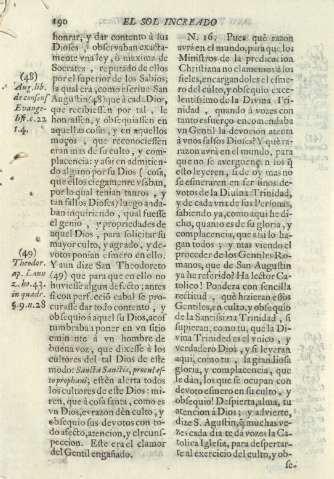 190 EL SOL INCREADO
honrar, y dar contento á sus
Dioses, observaban exacta-
mente vna ley, ò maxima de
Socrates, reputado de ellos
por el superior de los Sabios,
la qual era, como escriue San
Augustin(48) que à cada Dios,
que recibiessen por tal, le
honrassen, y obsequiassen en
aquellas cosas, y en aquellos
modos, que reconociessen
eran mas de su culto, y com-
placencia: y assi en admitien-
do alguno por su Dios (cosa,
que ellos ciegamente vsaban,
por lo qual tenian tantos, y
tan falsos Dioses) luego anda-
ban inquiriendo, qual fuesse
el genio, y propriedades de
aquel Dios, para solicitar su
mayor culto, y agrado, y de-
votos ponian esmero en ello.
Y aun dize San Theodoreto
(49) que para que en ello no
huviesse algun defecto; antes
si con perfecció cabal se pro-
curasse dar todo contento, y
obsequio à aquel su Dios, acos
tumbraba poner en vn sitio
eminente á vn hombre de
buena voz, que dixesse à los
cultores del tal Dios de este
modo: Sancta Sanctis, procul es-
to prophani; estèn alerta todos
los cultores de este Dios: mi-
ren, que à cosa santa, como es
vn Dios, es razon dèn culto, y
obsequio sus devotos con to-
do afecto, atencion, y circuns-
peccion. Este era el clamor
del Gentil engañado.
(48)
Aug. lib.
de consens.
Evange-
list. c. 22
t. 4.
(49)
Theodor.
ap. Laus
z. ho. 43.
in quadr.
§. 9. n. 28
N. 16. Pues què razon
avrà en el mundo, para que los
Ministros de la predicacion
Christiana no clamemos à los
fieles, encargandoles el esme-
ro del culto, y obsequio exce-
lentissimo de la Divina Tri-
nidad, quando à vozes con
tanto esfuerço encomendaba
vn Gentil la devocion atenta
à vnos falsos Dioses? Y què ra-
zon avrà en el mundo, para
que no se avergoncen los q̃
esto leyeren, si de oy mas no
se esmeraren en ser finos de-
votos de la Divina Trinidad,
y de cada vna de sus Personas,
sabiendo ya, como aqui he di-
cho, quanto es de su gloria, y
complacencia, que assi lo ha-
gan todos; y mas viendo el
proceder de los Gentiles Ro-
manos, que de San Augustin
ya he referido? Ha lector Ca-
tolico! Pondera con sencilla
rectitud, què hizieran essos
Gentiles, en culto, y obsequio
de la Santissima Trinidad, si
supieran, como tu, que la Di-
vina Trinidad es el vnico, y
verdadero Dios, y si leyeran
aqui, como tu, la grandiosa
gloria, y complacencia, que
le dàn, los que se ocupan con
devoto esmero en su culto, y
obsequio! Despierta, alma, tu
atencion à Dios; y advierte,
dize S. Agustin, q̃ muchas ve-
zes cada dia te dà vozes la Ca-
tolica Iglesia, para despertar-
te al exercicio del culto, y ob-
se-